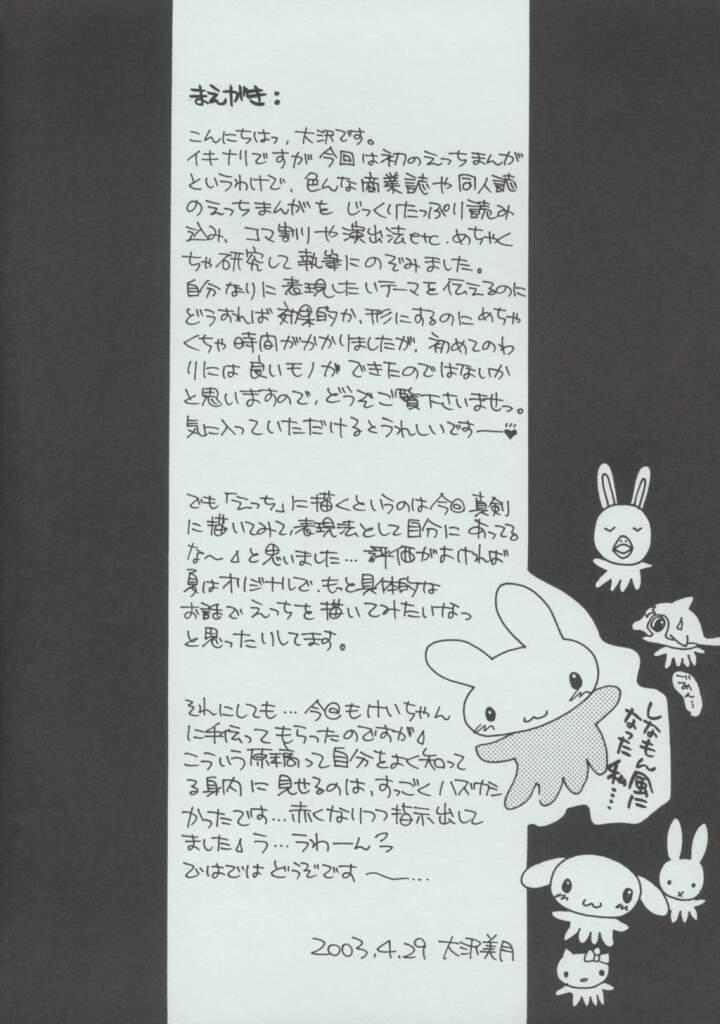 まえがき：
こんにちはっ、大沢です。
イキナリですが今回は初のえっちまんが
というわけで、色んな商業誌や同人誌
のえっちまんがを じっくりたっぷり読み
込み、コマ割りや演出法etc.めちゃく
ちゃ研究して執筆にのぞみました。
自分なりに表現したいテーマを伝えるのに
どうすれば効果的か、形にするのにめちゃ
くちゃ時間がかかりましたが、初めてのわ
りには良いモノができたのではないか
と思いますので、どうぞご覧下さいませっ。
気に入っていただけるとうれしいですー♥
でも「えっち」に描くというのは今回真剣
に描いてみて、表現法として自分にあってる
な〜♪と思いました…評価がよければ
夏はオリジナルで、もっと具体的な
お話でえっちを描いてみたいなっ
と思ったりしてます。
それにしても…今回もけいちゃん
に手伝ってもらったのですが♪
こういう原稿って自分をよく知って
る身内に見せるのは、すっごくハズかし
かったです…赤くなりつつ指示出して
ました♪う…うわーんっ
ではでは どうぞです〜…
2003.4.29 大沢美月
ごめん…
しなもん風に
なった私…